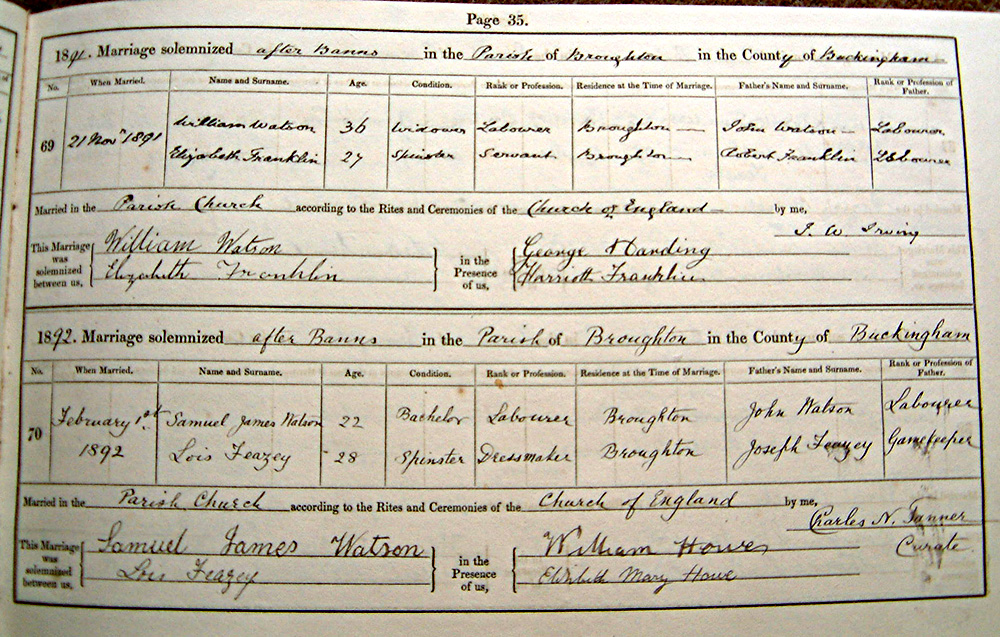 Page 35.
1891. Marriage solemnized after Banns in the Parish of Broughton in the County of Buckingham
No. When Married. Name and Surname. Age. Condition. Rank or Profession. Residence at the Time of Marriage. Father's Name and Surname. Rank or Profession of Father.
William Watson 36 Widower Labourer Broughton John Watson Labourer
69 21 Novr 1891
Elizabeth Franklin 27 Spinster Servant Broughton Robert Franklin Labourer
Married in the Parish Church according to the Rites and Ceremonies of the Church of England by me,
J. W. Irving
This Marriage was solemnized between us, William Watson in the Presence of us, George Harding
Elizabeth Franklin Harriott Franklin
1892. Marriage solemnized after Banns in the Parish of Broughton in the County of Buckingham
No. When Married. Name and Surname. Age. Condition. Rank or Profession. Residence at the Time of Marriage. Father's Name and Surname. Rank or Profession of Father.
70 February 1st Samuel James Watson 22 Bachelor Labourer Broughton John Watson Labourer
1892 Lois Feazey 28 Spinster Dressmaker Broughton Joseph Feazey Gamekeeper
Married in the Parish Church according to the Rites and Ceremonies of the Church of England by me,
Charles N. Tanner
Curate
This Marriage was solemnized between us, Samuel James Watson in the Presence of us, William Howe
Lois Feazey Elizabeth Mary Howe